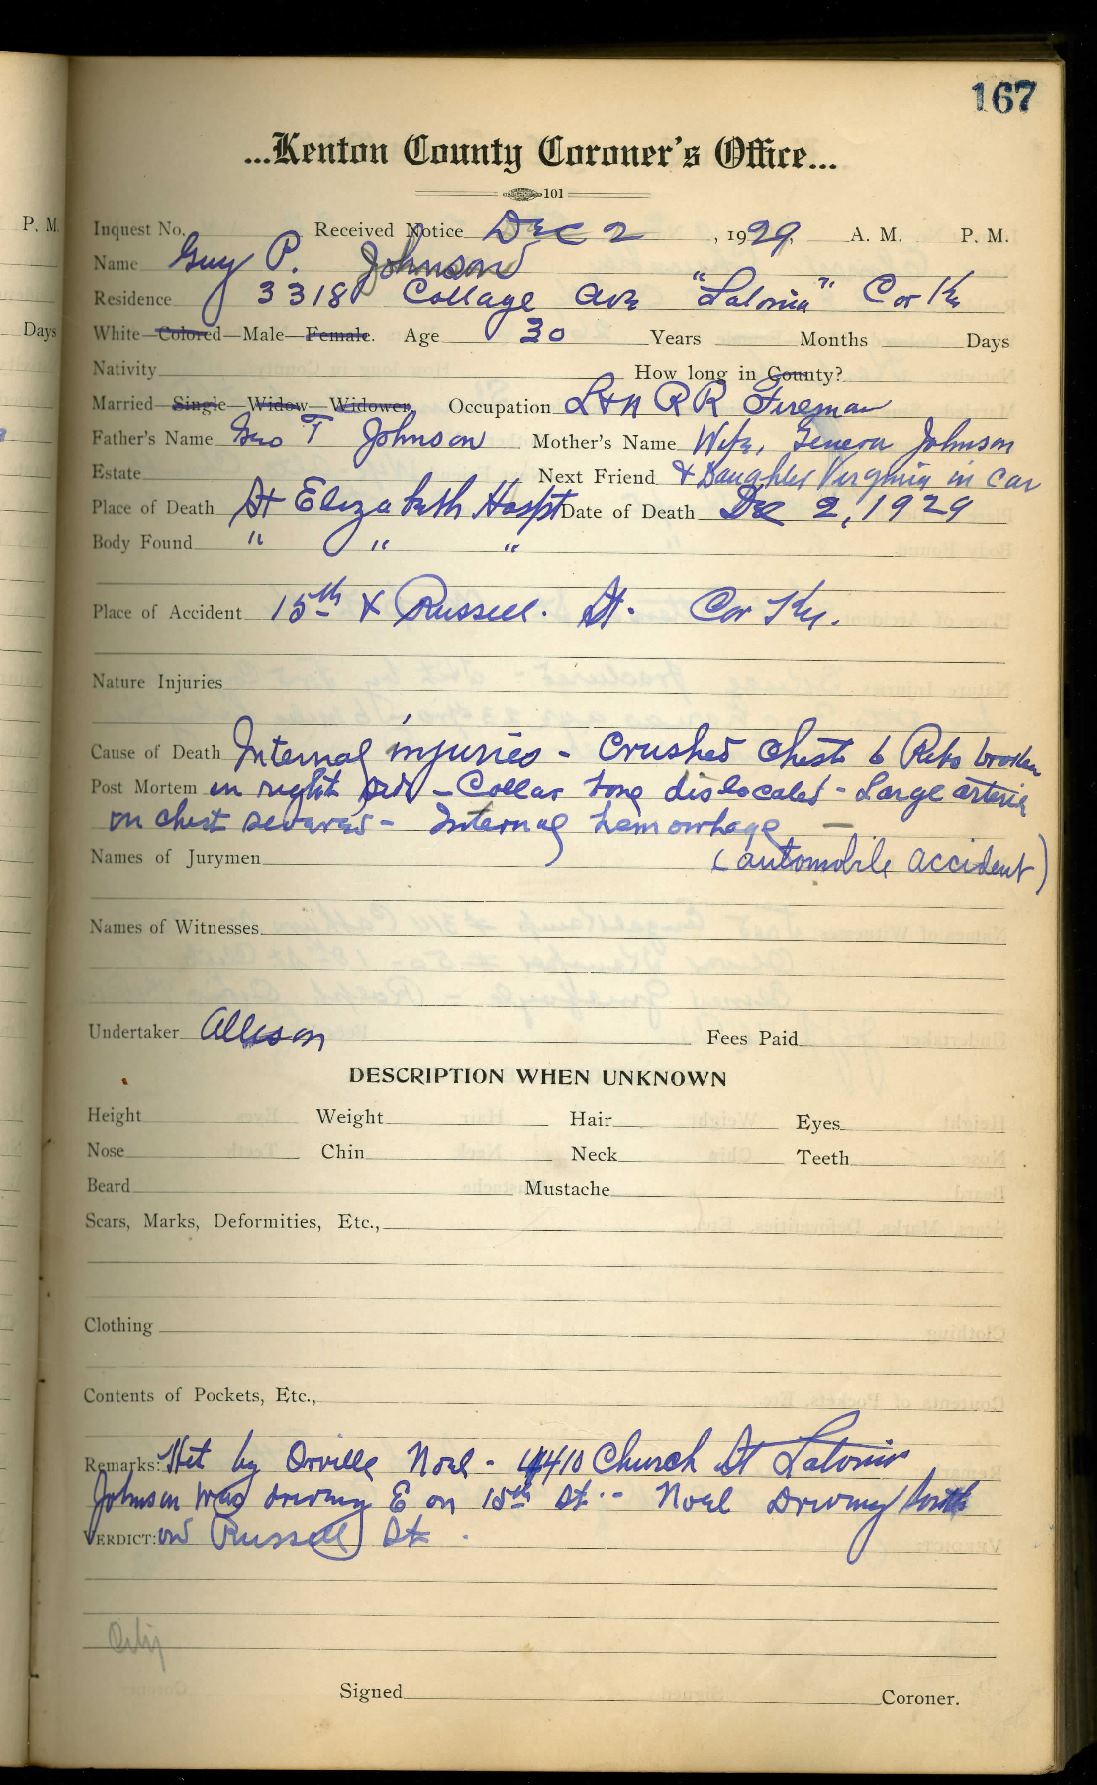 167
...Kenton County Coroner's Office...
101
P. M.
Inquest No. Received Notice Dec 2, 1929, A. M. P. M.
Name Guy P. Johnson
Residence 3318 Collage Ave "Latonia" Cov Ky
Days
White—Colored—Male—Female. Age 30 Years Months Days
Nativity How long in County?
Married—Single—Widow—Widower, Occupation L & N RR Fireman
Father's Name Geo T Johnson Mother's Name Wife, Geneva Johnson
Estate Next Friend & Daughter Virginia in car
Place of Death St Elizabeth Hospt Date of Death Dec 2, 1929
Body Found " " "
Place of Accident 15th & Russell. St. Cov Ky.
Nature Injuries
Cause of Death Internal injuries - Crushed chest 6 Ribs broken
Post Mortem on right side - Collar bone dislocated - Large arteries
on chest severed - Internal hemorrhage —
Names of Jurymen (automobile accident)
Names of Witnesses
Undertaker Allison Fees Paid
DESCRIPTION WHEN UNKNOWN
Height Weight Hair Eyes
Nose Chin Neck Teeth
Beard Mustache
Scars, Marks, Deformities, Etc.,
Clothing
Contents of Pockets, Etc.,
Remarks: Hit by Orville Noel - 4410 Church St Latonia
Johnson was driving E on 15th St. - Noel Driving
VERDICT: on Russell St.
Signed Coroner.